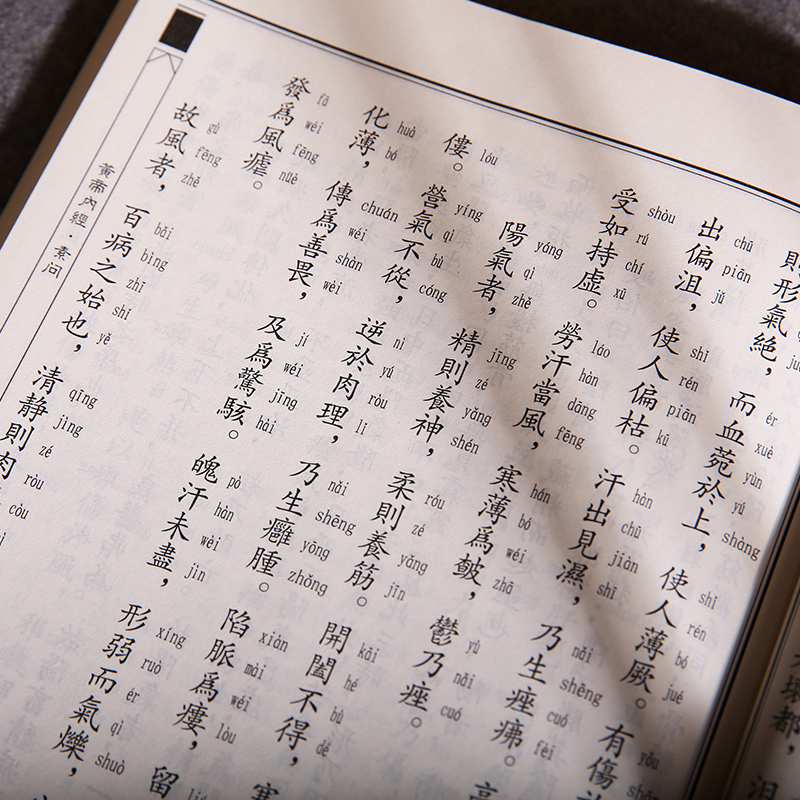 則形氣絶，而血菀於上，使人薄厥。有傷
ér xuè yùn yú shàng shǐ rén bó jué yǒu
出偏沮，使人偏枯。汗出見濕，乃生痤疿。高
chū piān jǔ shǐ rén piān kū hàn chū jiàn shī nǎi shēng cuó fèi
受如持虚。勞汗當風，寒薄爲皶，鬱乃痤。
shòu rú chí xū láo hàn dāng fēng hán bó wéi zhā yù nǎi cuó
陽氣者，精則養神，柔則養筋。開闔不得，寒
yáng qì zhě jīng zé yǎng shén róu zé yǎng jīn kāi hé bù dé
僂。營氣不從，逆於肉理，乃生癰腫。陷脈爲瘻，留
lóu yíng qì bù cóng nì yú ròu lǐ nǎi shēng yōng zhǒng xiàn mài wéi lòu
化薄，傳爲善畏，及爲驚駭。魄汗未盡，形弱而氣爍，
huà bó chuán wéi shàn wèi jí wéi jīng hài pò hàn wèi jìn xíng ruò ér qì shuò
發爲風瘧。
fā wéi fēng nüè
故風者，百病之始也，清静則肉
gù fēng zhě bǎi bìng zhī shǐ yě qīng jìng zé ròu còu
黃帝內經·素问